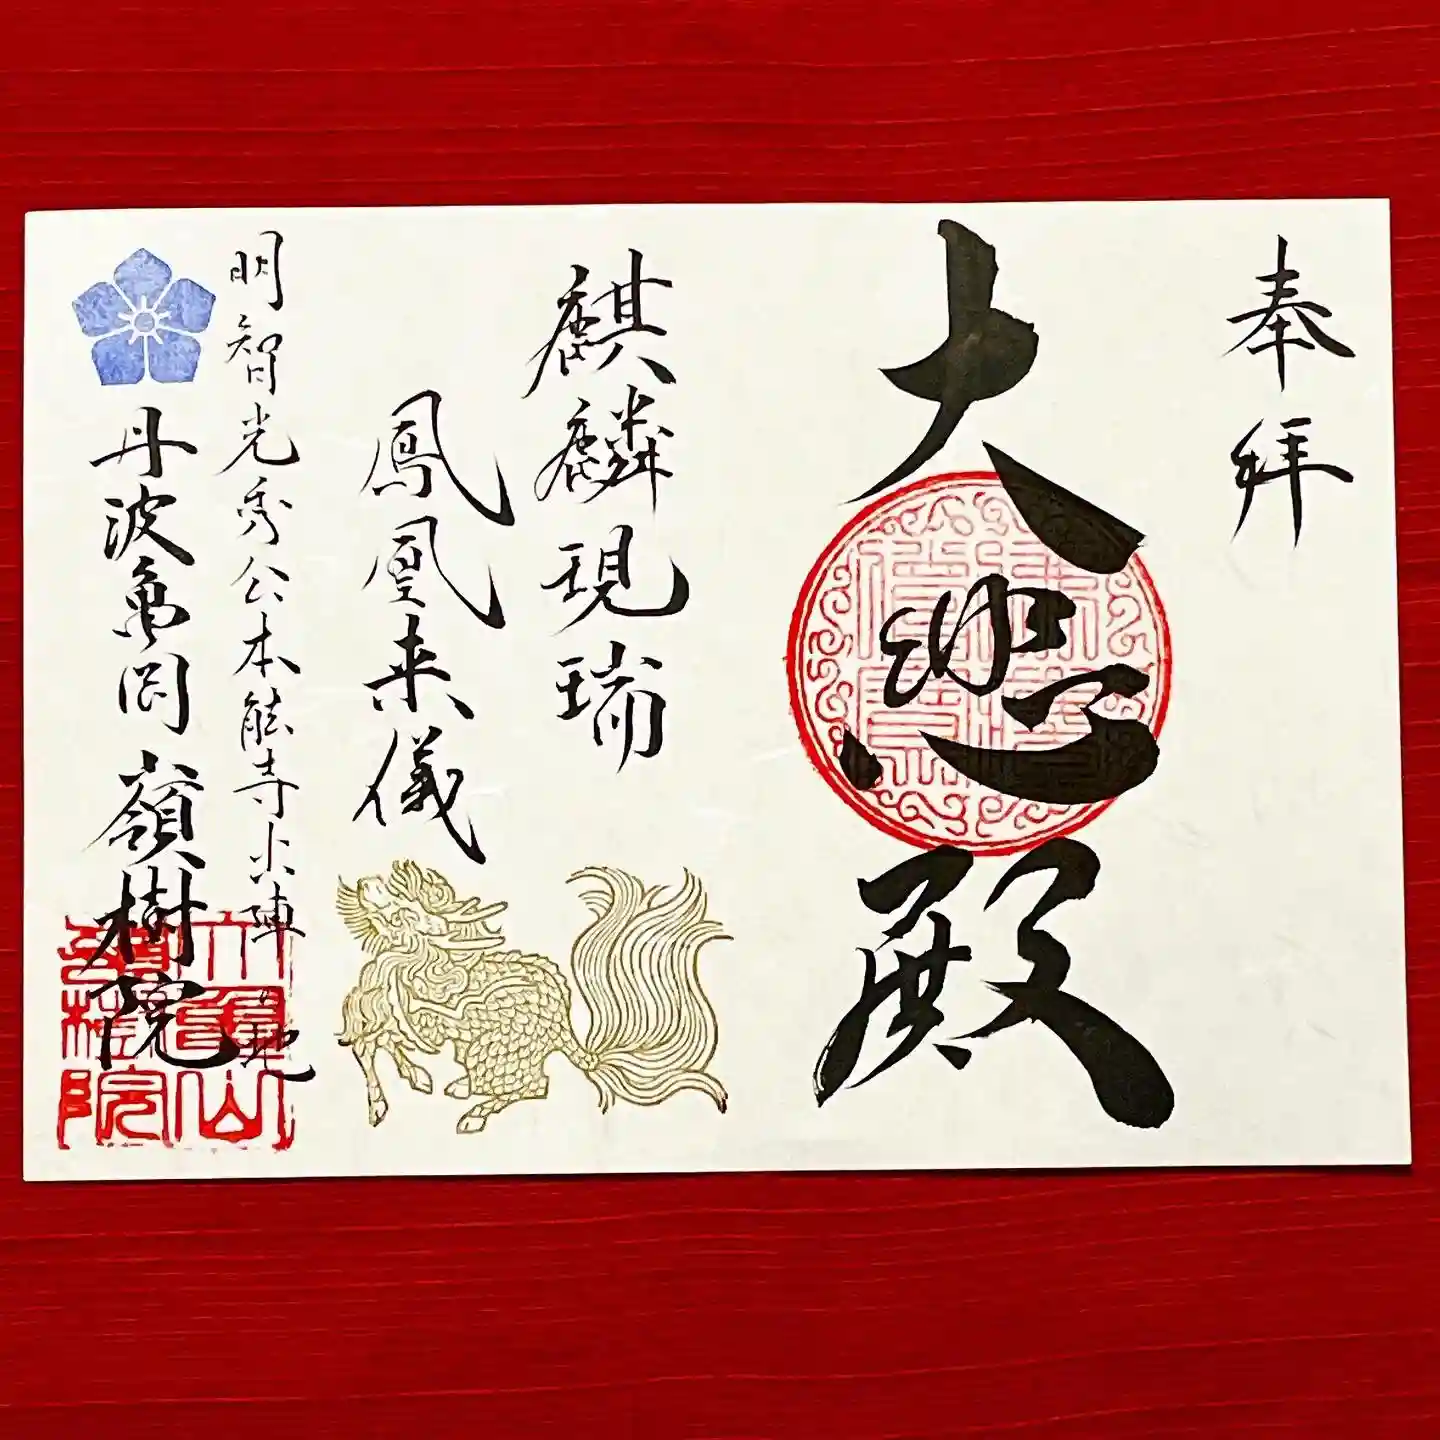 奉拝
大悲殿
麒麟現瑞
鳳凰来儀
明智光秀公本能寺出陣の地
丹波亀岡 嶺樹院